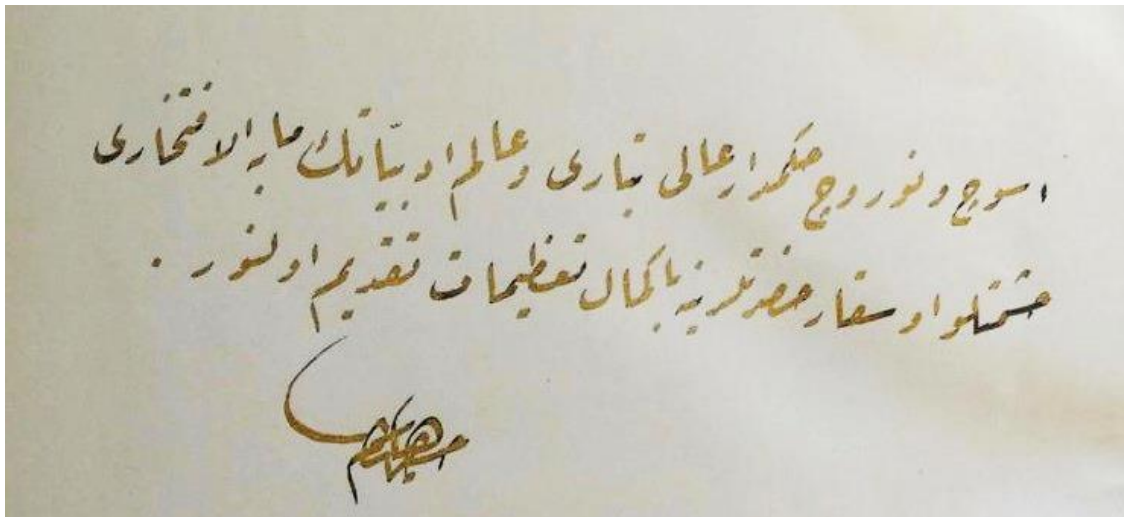 اسوج و نوروج حكمدار عالی تباری و عالم ادبیّاتك مابه الافتخاری
حشمتلو اوسقار حضرتلرینه باكمال تعظیمات تقدیم اولنور .